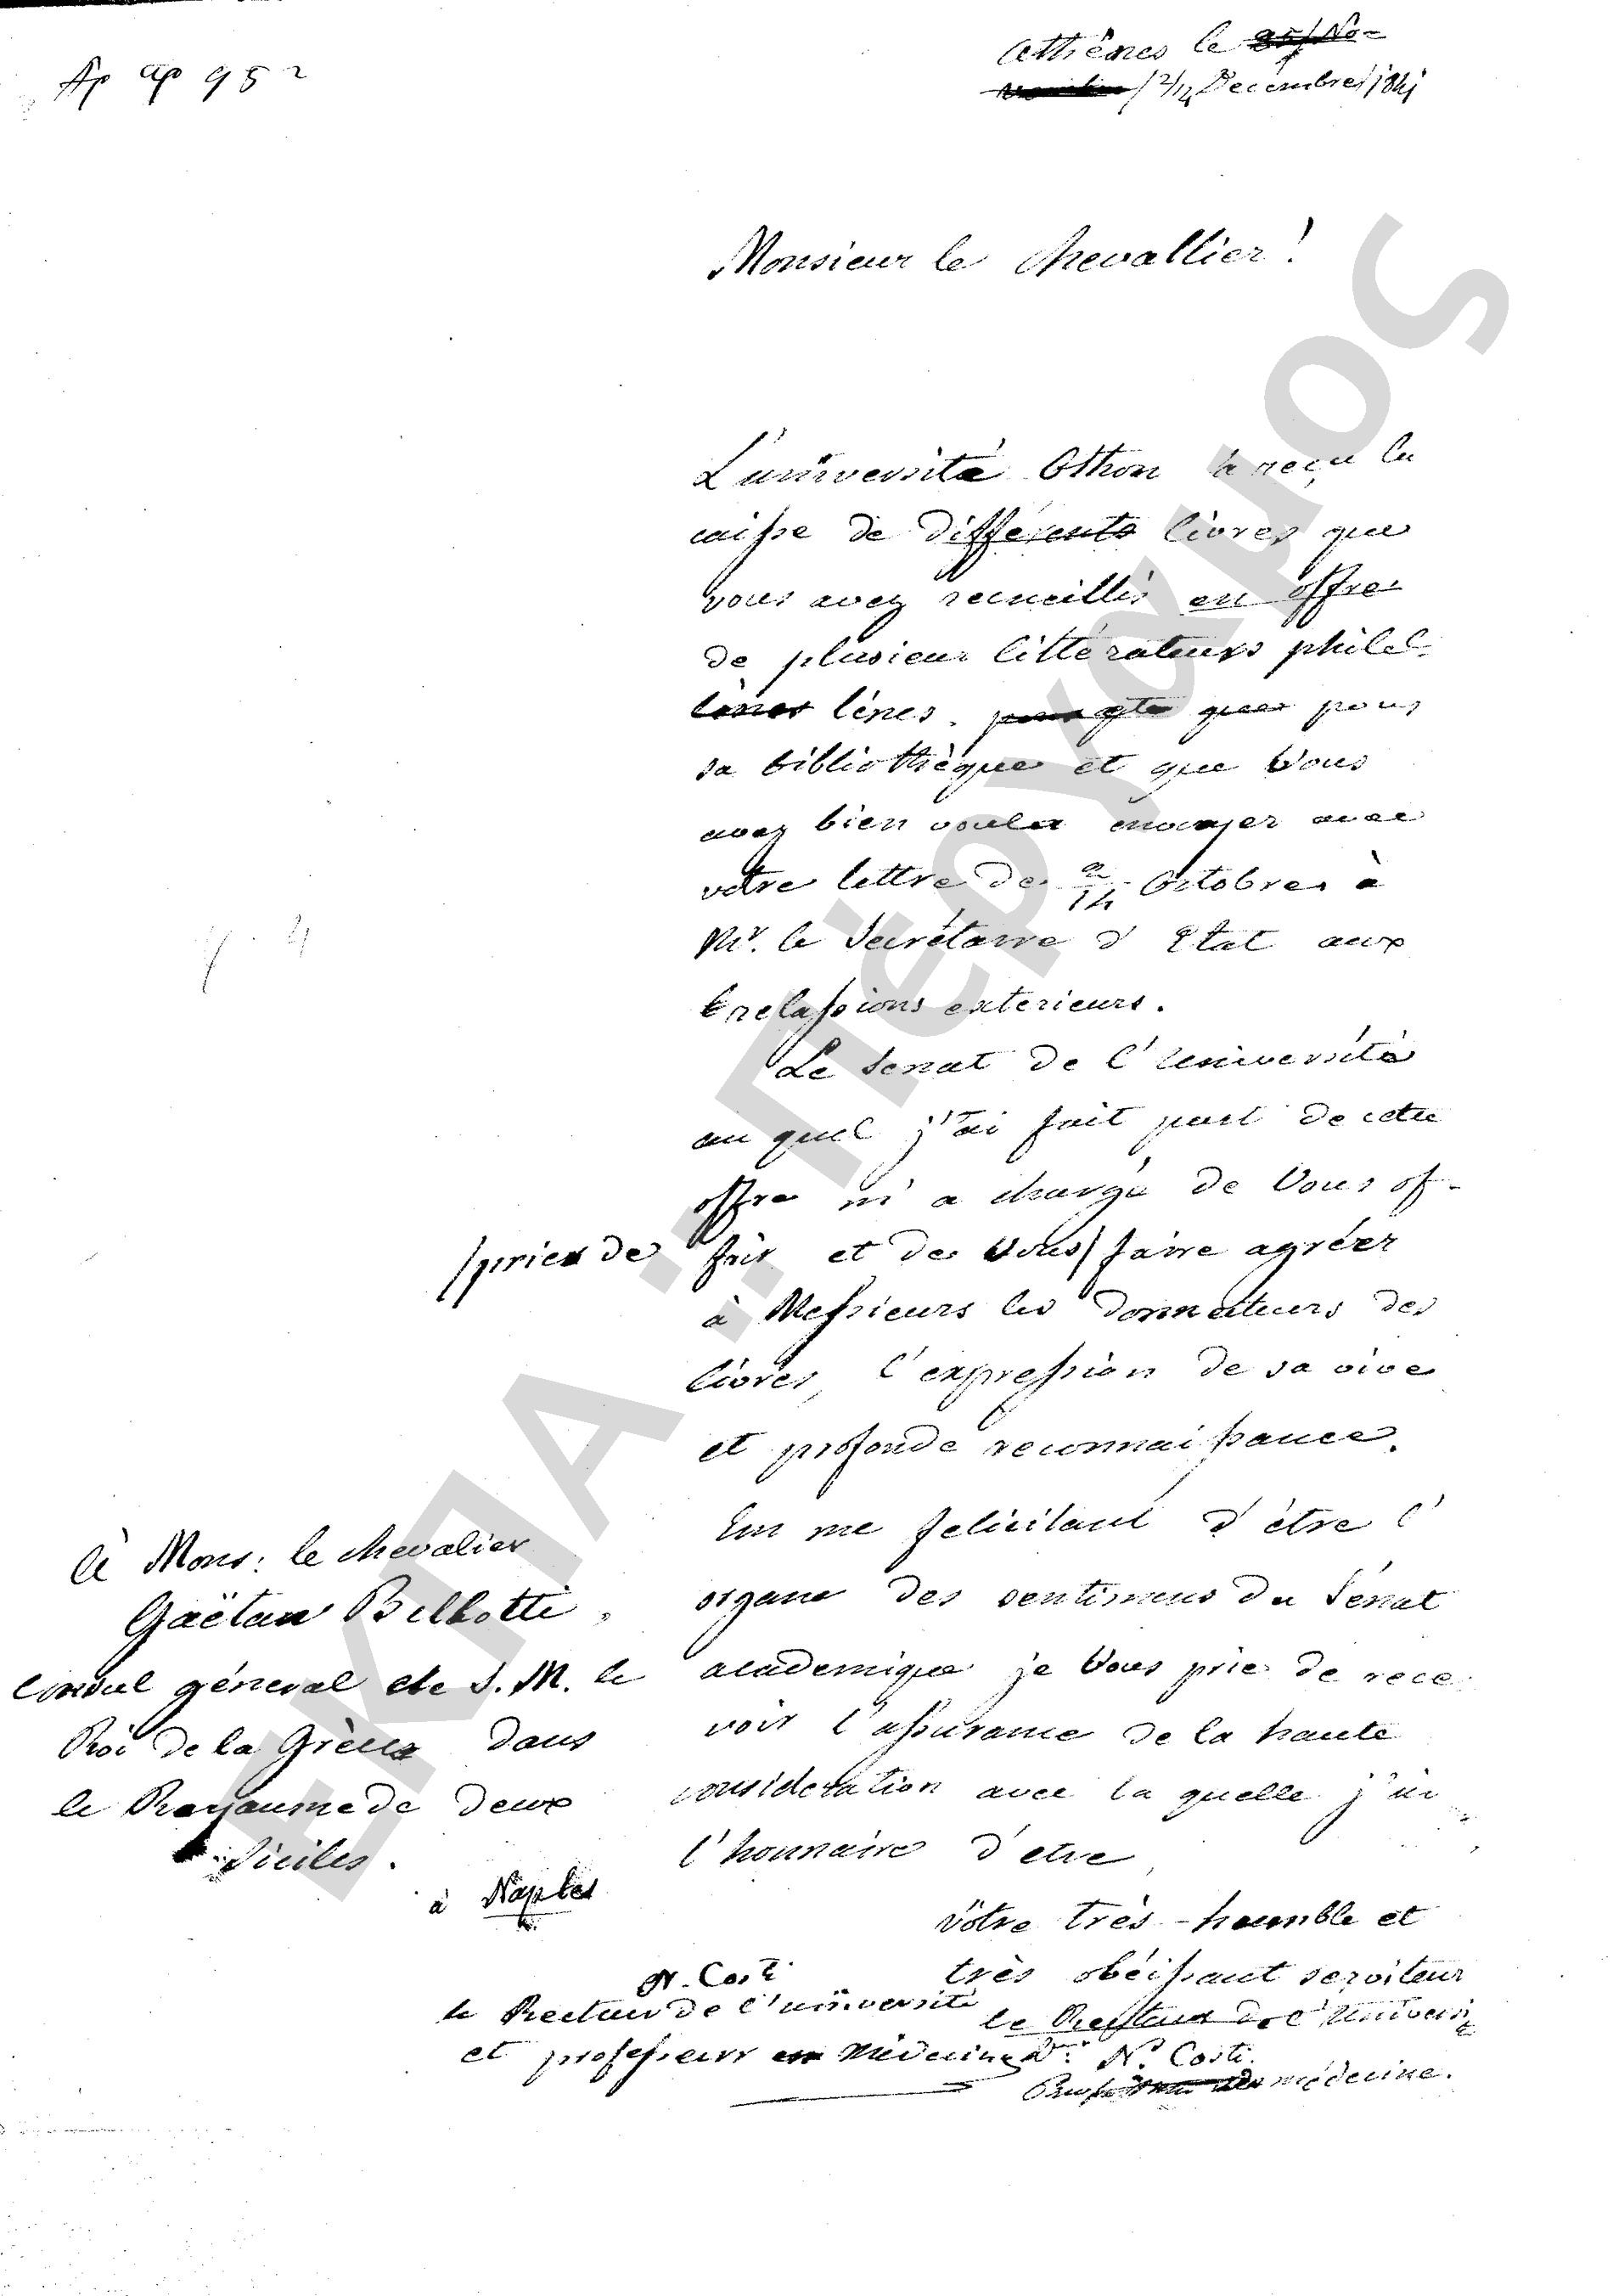 Αρ αρ 952
Athènes le
2/14 Decembre 1841
Monsieur le Chevallier!
L'université Othon a reçu la
caisse de différents livres que
vous avez recueillis en offre
de plusieur littérateurs philel-
lènes pour
sa bibliothèque et que Vous
avez bien voulu envoyer avec
votre lettre de 2/14 Octobre à
Mr. le Secrétaire d'Etat aux
relassions exterieurs.
Le Senat de l'Université
au quel j'ai fait part de cette
offre m'a chargé de Vous of-
frir et de Vous / faire agréer
/ prier de
à Messieurs les donnateurs des
livres, l'expression de sa vive
et profonde reconnaissance.
En me felicitant d'être l'
organe des sentimens du Sénat
académique je Vous prie de rece
voir l'assurance de la haute
consideration avec la quelle j'ai
l'honnaire d'etre
Vôtre très-houmble et
très obéissant serviteur
le Recteur de l'Universi
té
Dr. N. Costi
médecine.
à Mons: le chevalier
Gaëtan Bellotti
Consul géneral de S. M. le
Roi de la Grèce dans
le Royaume de deux
Siciles.
à Naples
N. Costi
le Recteur de l'université
et professeur en Médecine
ΕΚΠΑ - Πέργαμος